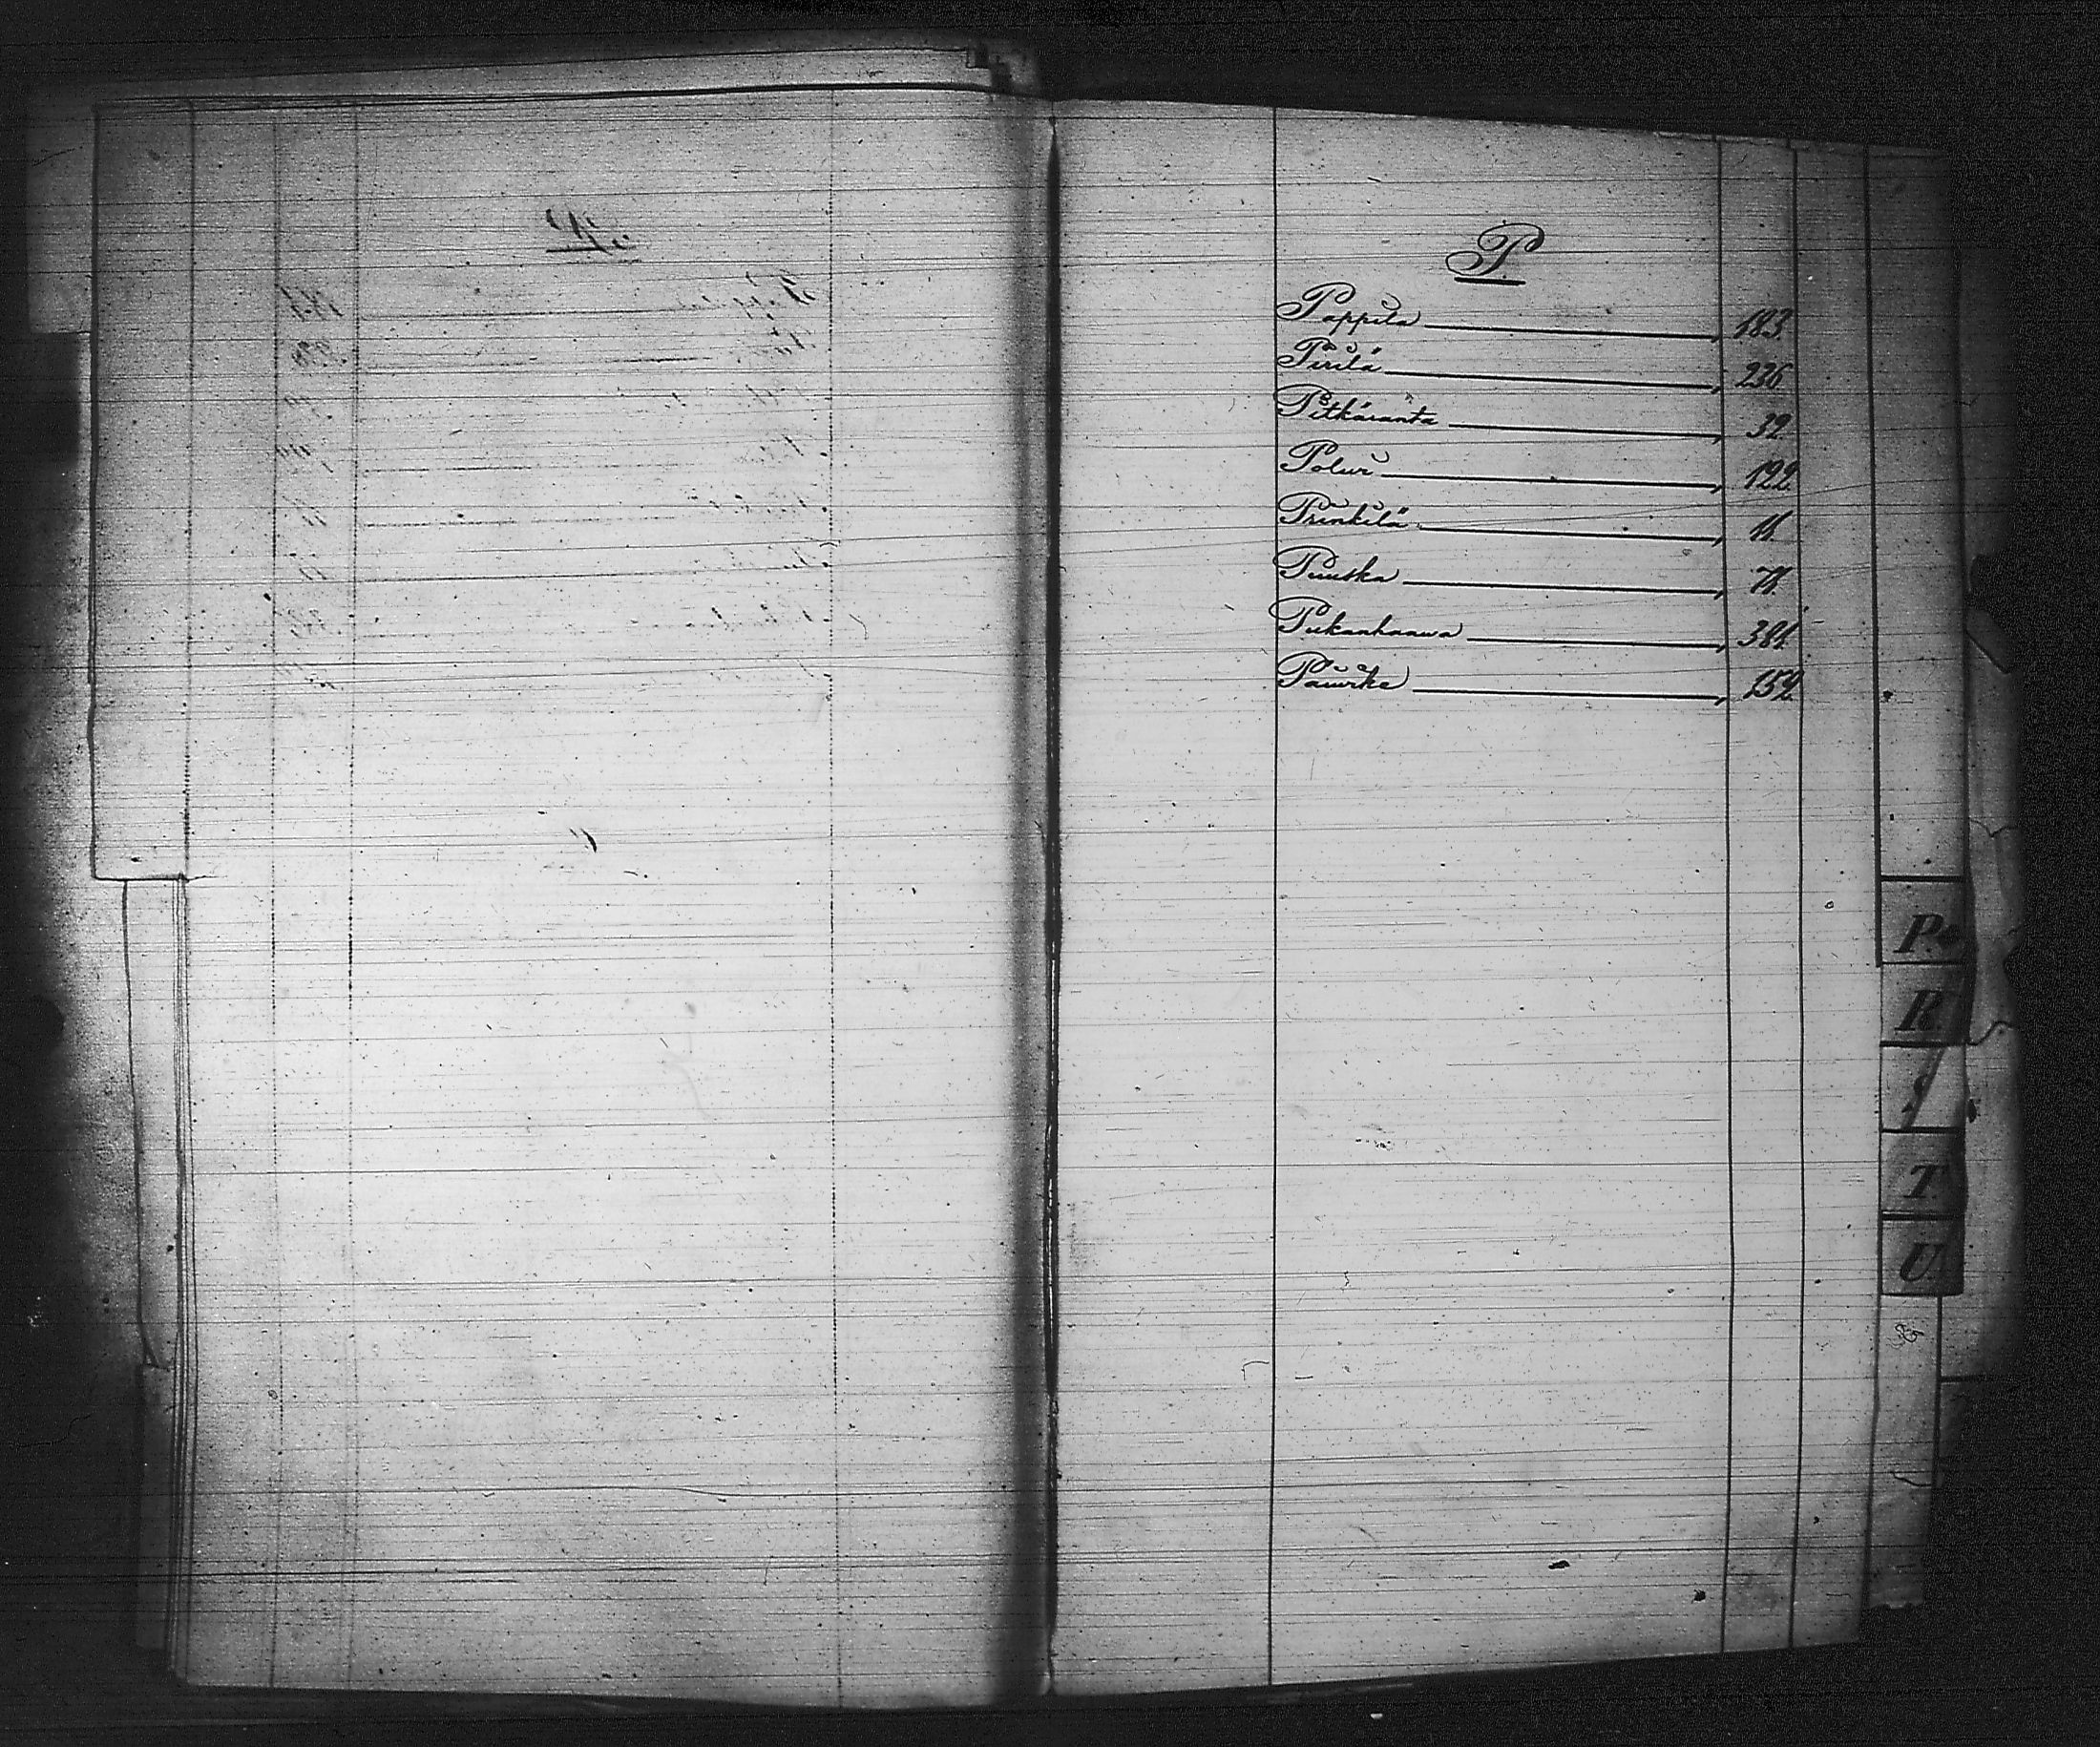 P
Pappila 183.
Pirilä 236
Pitkäranta 32
Poluri 122.
Prinkilä 11
Puuska 71.
Pukanhaawa 381.
152.
P.
R.
S
T.
U.